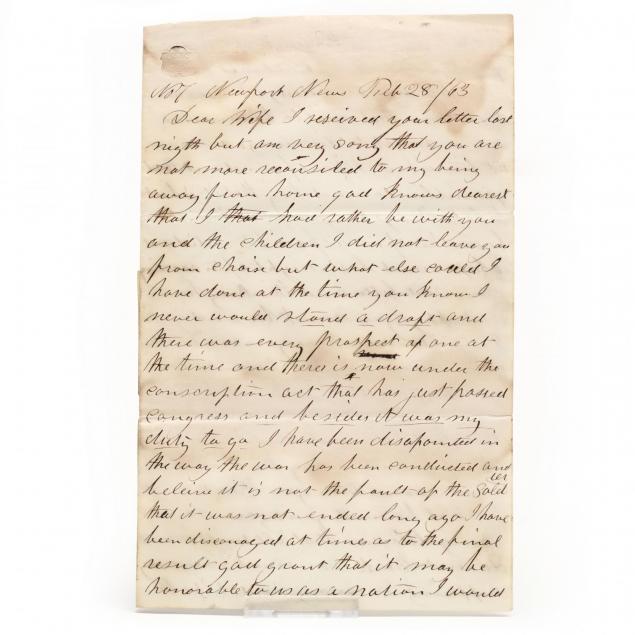 No 7 Newport News Feb 28/63
Dear Wife I received your letter last
nigth but am very sorry that you are
not more reconsiled to my being
away from home god knows dearest
that I that had rather be with you
and the children I did not leave you
from choise but what else could I
have done at the time you know I
never would stand a draft and
there was every prospect of one at
the time and there is now under the
conscription act that has just passed
congress and besides it was my
duty to go I have been disapointed in
the way the war has been conducted and
beleive it is not the fault of the Soldiers
that it was not ended long ago I have
been discouraged at times as to the final
result god grant that it may be
honorable to us as a nation I would